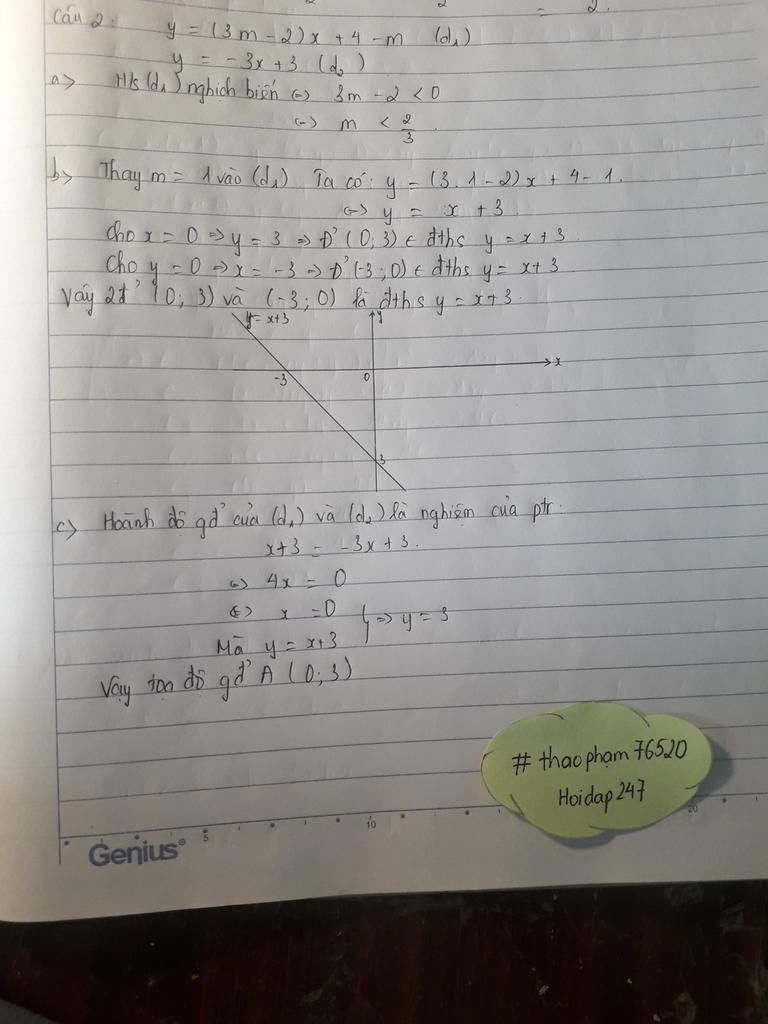 = 2.
Câu 2: y = (3m - 2)x + 4 - m (d₁)
y = -3x + 3 (d₂)
a> H/s (d₁) nghịch biến <=> 3m - 2 < 0
<=> m < 2/3.
b> Thay m = 1 vào (d₁). Ta có: y = (3.1 - 2)x + 4 - 1.
<=> y = x + 3.
Cho x = 0 => y = 3 => Đ' (0; 3) ∈ đths y = x + 3.
Cho y = 0 => x = -3 => Đ' (-3; 0) ∈ đths y = x + 3
Vậy 2đ' (0; 3) và (-3; 0) là đths y = x + 3.
y = x+3
y
x
-3
0
3
c> Hoành độ gđ' của (d₁) và (d₂) là nghiệm của ptr:
x+3 = -3x + 3.
<=> 4x = 0
<=> x = 0
Mà y = x+3 } => y = 3
Vậy tọa độ gđ' A (0; 3)
# thaophạm 76520
Hoidap 247
5 10 20
Genius®